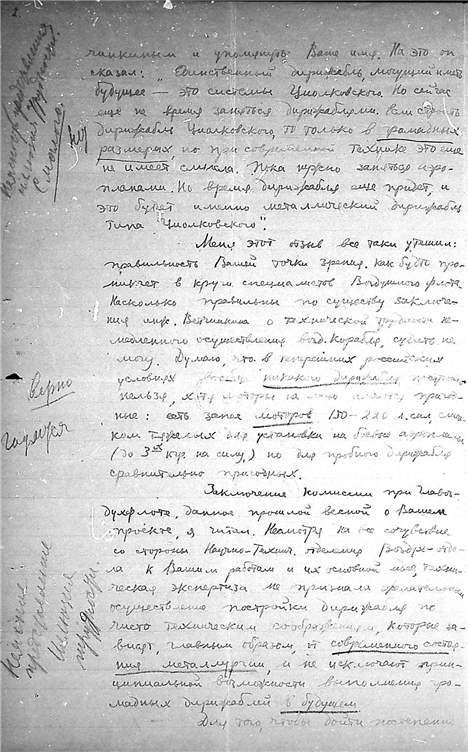 и упомянуть Ваше имя. На это он
сказал: "Единственный дирижабль, могущий иметь
будущее — это системы Циолковского. Но сейчас
еще не время заняться дирижаблями. Если строить
дирижабль Циолковского, то только в громадных
размерах, но при современной технике это еще
не имеет смысла. Пока нужно заняться аэро-
планами. Но время дирижабля еще придет, и
это будет именно металлический дирижабль
типа "Циолковского".
Меня этот отзыв все таки утешил:
правильность Вашей точки зрения, как будто про-
никает в круги специалистов Воздушного флота.
Насколько правильны по существу заключе-
ния инж. Ветчинкина о технической трудности не-
медленного осуществления возд. корабля, судить не
могу. Думаю, что в российских
условиях никакого дирижабля построить
нельзя, хотя моторы
есть запас моторов 150-220 л. сил, слиш-
ком тяжелых для установки на боевые аэропланы
но для пробного дирижабля
сравнительно пригодных.
Заключение комиссии при Главвоз-
духфлота, данное прошлой весной о Вашем
проекте, я читал. Несмотря на все сочувствие
со стороны Научно-Технич. отделения
к Вашим работам и их основной идее, техни-
ческая экспертиза не признала желательным
осуществление постройки дирижабля по
чисто техническим соображениям, которые за-
висят, главным образом, от современного состоя-
ния металлургии, и не исключают прин-
ципиальной возможности выполнения гро-
мадных дирижаблей в будущем.
Для того, чтобы дойти постепенно
верно